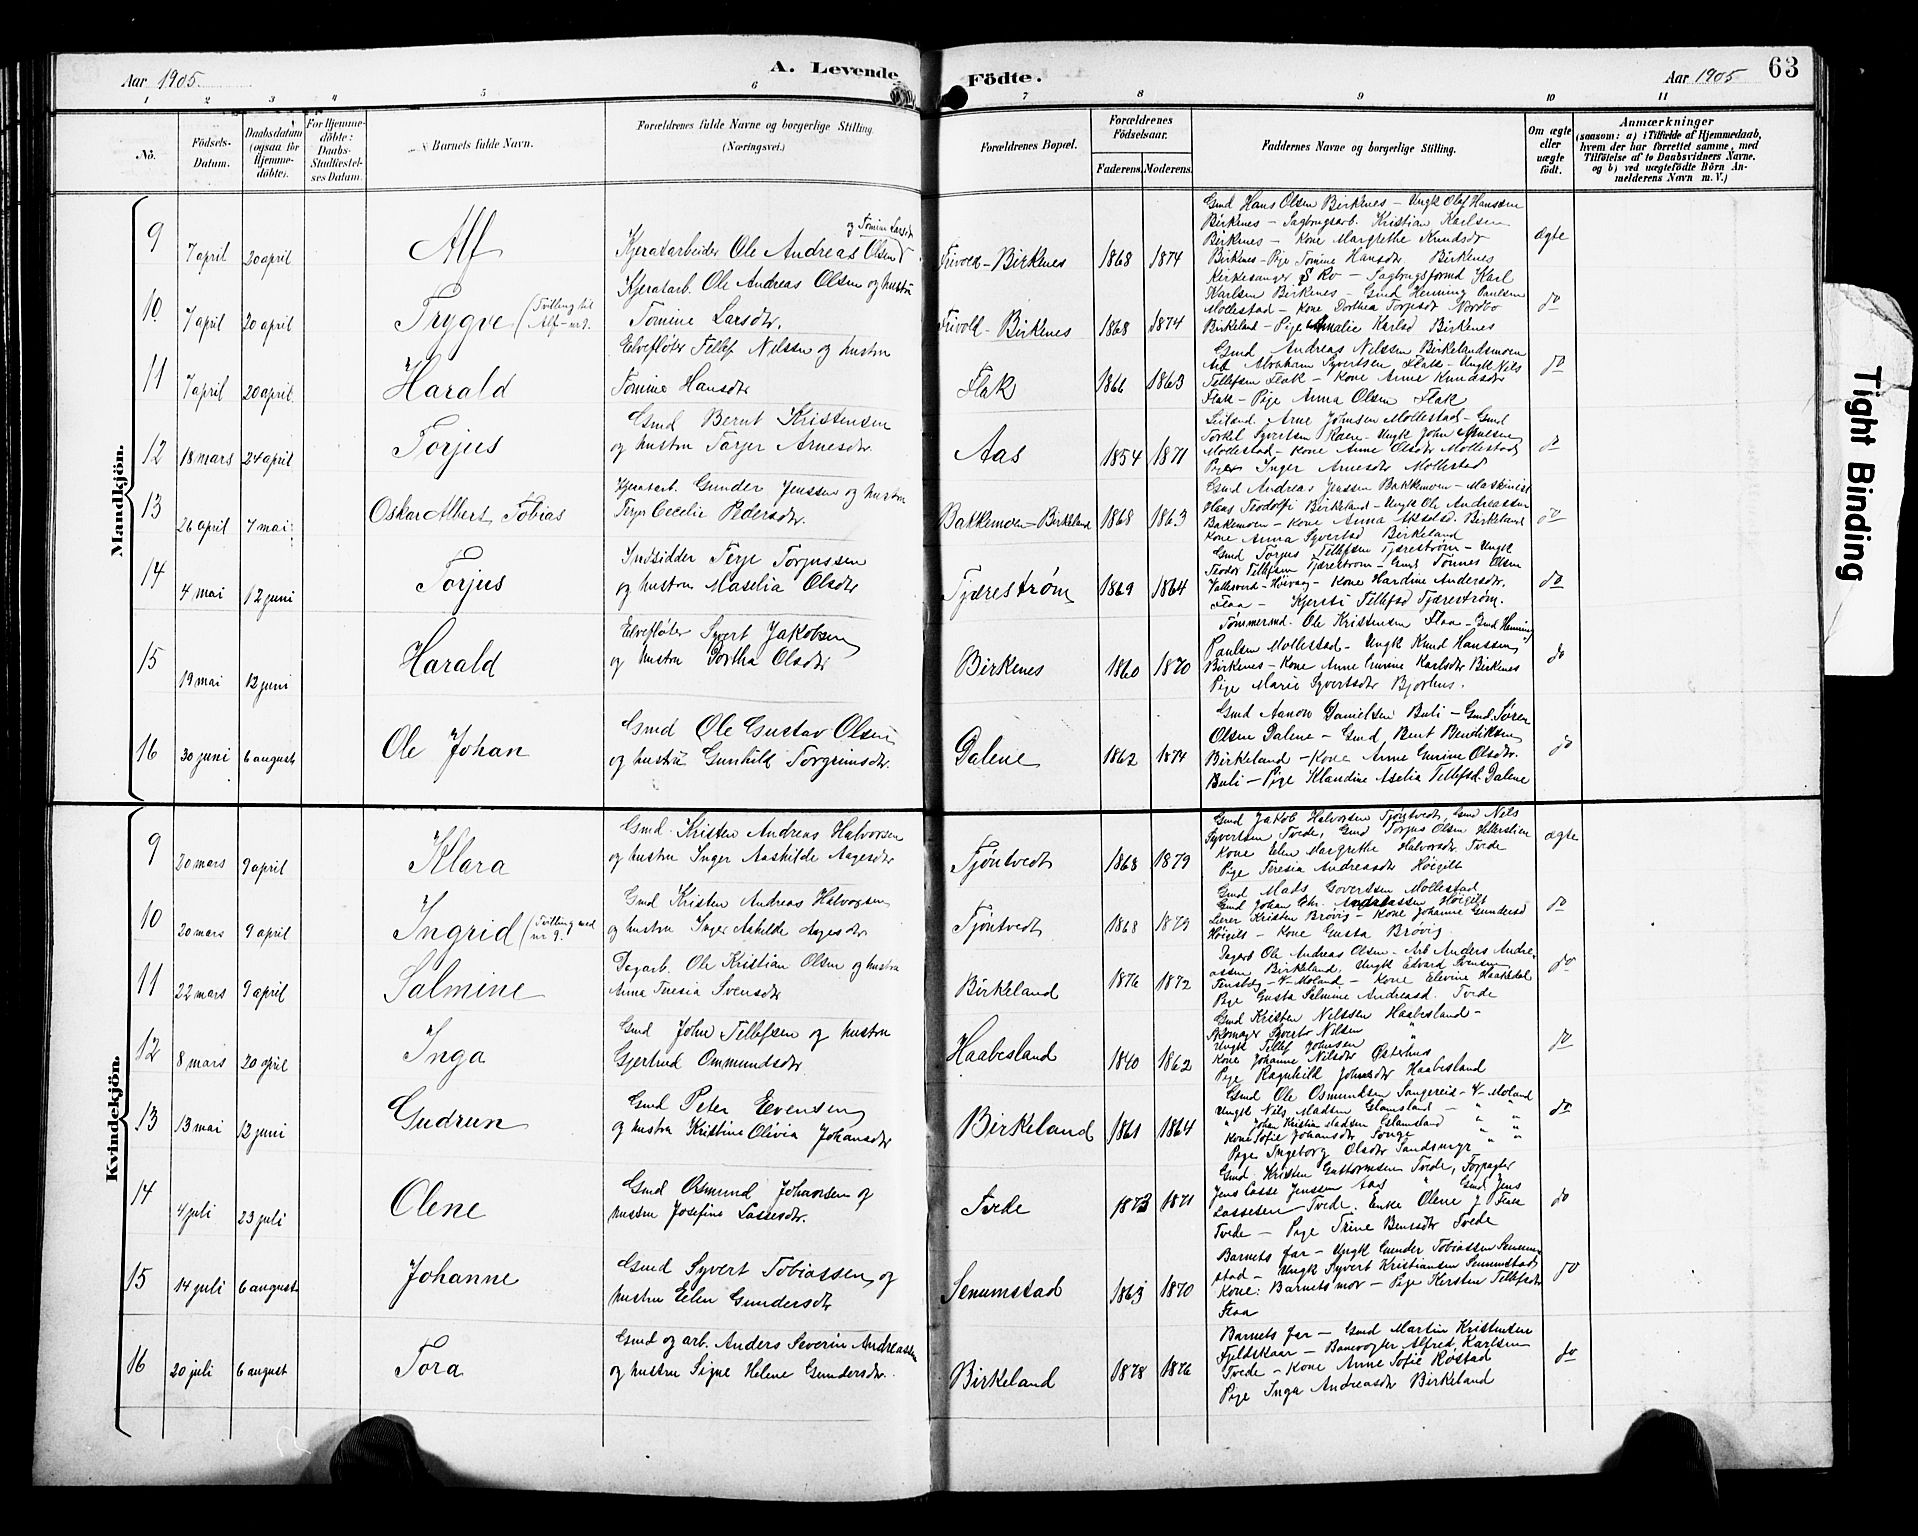 Aar 1905. A. Levende Fødte. Aar 1905 63
1 2 3 4 5 6 7 8 9 10 11
No. Födsels-Datum. Daabsdatum (ogsaa for Hjemmedöbte). For Hjemmedöbte: Daabs-Stadfæstelses Datum. Barnets fulde Navn. Forældrenes fulde Navne og borgerlige Stilling (Næringsvei.) Forældrenes Bopæl. Forældrenes Födselsaar. Faderens. Moderens. Faddernes Navne og borgerlige Stilling. Om ægte eller uægte födt. Anmærkninger (saasom: a) i Tilfælde af Hjemmedaab, hvem der har forrettet samme, med Tilföielse af to Daabsvidners Navne. og b) ved uægtefödte Börn Anmelderens Navn m. V.)
Mandkjön.
9 7 april 20 april Alf Kjeratarbeider Ole Andreas Olsen og Tomine Larsdr Frivold - Birkenes 1868 1874 ægte
Gmd Hans Olsen Birkenes - Ungk Olaf Hanssen
Birkenes - Sagbrugsarb. Kristian Karlsen
Birkenes - Kone Margrethe Knudsdr
Birkenes - Pige Tomine Hansdr Birkenes
10 7 april 20 april Trygve (Tvilling til Alf - nr 9. Kjeratarb. Ole Andreas Olsen og hustru
Tomine Larsdr. Frivold - Birkenes 1868 1874 do
Kirkesanger S Ro - Sagbrugsformd Karl
Karlsen Birkenes - Gmd Henning Paulsen
Mollestad - Kone Dorthea Torjesd Nordbo
Birkeland - Pige Amalie Karlsd Birkenes
11 7 april 20 april. Harald Elvefløter Tellef Nilsen og hustru
Tomine Hansdr Flak 1866 1863 do
Gmd Andreas Nilssen Birkelandsmoen
Arb Abraham Syvertsen Flak - Ungk Nils
Tellefsen Flak - Kone Anne Knudsdr
Flak - Pige Anna Olsen Flak
12 18 mars 24 april Torjus Gmd Bernt Kristensen
og hustru Tarjer Arnesdr. Aas 1854 1871
Leiland. Arne Johnsen Mollestad - Gmd
Torkel Syvertsen - Ungk John
Mollestad - Kone Anne Olsdr Mollestad
Pige Inger Arnesdr Mollestad
13 26 april 7 mai Oskar Albert Tobias Kjeratarb. Gunder Jenssen og hustru
Terjer Cecelie Pedersdr. Bakkemoen - Birkeland 1868 1863 do
Gmd Andreas Jenssen Bakkemoen - Maskinist
Hans Teodolfi Birkeland - Ungk Ole Andreassen
Bakemoen - Kone Anna Birkeland
Kone Anna Syvertsd Birkeland
14 4 mai 12 juni Torjus Indsidder Terje Torjussen
og hustru Maselia Olsdr Tjærestrøm 1869 1864 do
Gmd Torjus Tellefsen Tjærestrøm - Ungk
Teodor Tellefsen Tjærestrøm - Gmd Tønnes Olsen
Vallesverd - Høivaag - Kone Hardine Andersdr.
Flaa - Kjersti Tellefsd Tjærestrøm.
15 19 mai 12 juni Harald Elvefløter Syvert Jakobsen
og hustru Olsdr Birkenes 1860 1870 do
Tømmermd. Ole Kristensen Flaa - Gmd Henning
Paulsen Mollestad - Ungk Knud Hanssen
Birkenes - Kone Anne Gunine Karlsdr Birkenes
Pige Marie Syvertsdr Bjorhus.
16 30 juni 6 august Ole Johan Gmd Ole Gustav Olsen
og hustru Gunhild Torgrimsdr. Dalene 1862 1874 do
Gmd Aanon Danielsen Buli - Gmd. Søren
Olsen Dalene - Gmd Bent Bendiksen
Birkeland - Kone Anne Gunine Olsdr.
Buli - Pige Klandine Aselia Tellefsd. Dalene
Kvindekjön.
9 20 mars 9 april Klara Gmd. Kristen Andreas Halvorsen
og hustru Inger Aashilde Aagesdr Tjøntvedt 1868 1879 ægte
Gmd Jakob Halvorsen Tjøntvedt, Gmd Nils
Syvertsen Tvede, Gmd Torjus Olsen
Kone Elen Margrethe Halvorsdr. Tvede
Pige Teresia Andreasdr Høigilt
10 20 mars 9 april Ingrid (Tvilling med nr 9. Gmd Kristen Andreas Halvorsen
og hustru Inger Ashilde Aagesdr Tjøntvedt 1868 1879 do
Gmd Mads Govertsen Mollestad
Gmd Johan Chr. Andreassen Høigilt
Lærer Kristen Brøvig - Kone Johanne Gundersd
Høigilt - Kone Gusta Brøvig
11 22 mars 9 april Salmine Dagarb. Ole Kristian Olsen og hustru
Anna Teresia Svensdr Birkeland 1876 1872 do
Dagarb Ole Andreas Olsen - Arb Anders Andreassen
Birkeland. Ungk Edvard Svensen
V-Moland - Kone Elevine Haakedal
Pige Gusta Salmine Andreasd. Tvede
12 8 mars 20 april Inga Gmd John Tellefsen og hustru
Gjertrud Ommundsdr. Haabesland 1840 1862 do
Gmd Kristen Nelssen Haabesland -
Skomager Syvert Nilsen "
Ungk Tellef Johnsen
Kone Johanne Nilsdr Østerhus
Pige Ragnhild Johnsdr Haabesland
13 13 mai 12 juni Gudrun Gmd Peter Evensen
og hustru Kristine Olivia Johansdr Birkeland 1861 1864 do
Gmd Ole Osmundsen Sangereid - V-Moland
Ungk Nils Madsen Glamsland - " "
" Johan Kristian Madsen Glamsland " "
Kone Sofie Johansdr Songe " "
Pige Ingeborg Olsdr Sandsmyr
14 4 juli 23 juli Olene Gmd Osmund Johansen og
hustru Josefine Lassesdr. Tvede 1873 1871 do
Gmd Kristen Guttormsen Tvede, Forpagter
Jens Lasse Jenssen Aas " Gmd Jens
Lassesen - Tvede. Enke Olene J Flak
Tvede - Pige Trine Bensdr Tvede
15 14 juli 6 august Johanne Gmd Syvert Tobiassen og
hustru Elen Gundersdr Senumstad 1863 1870 do
Barnets far - Ungk Gunder Tobiassen Senumstad
- Ungk Syvert Kristiansen Senumstad
Kone: Barnets mor - Pige Kersten Tellefsdr
Flaa
16 20 juli 6 august Tora Gmd og arb. Anders Severin Andreassen
og hustru Signe Helene Gundersdr. Birkeland 1878 1876 do
Barnets far - Gmd Martin Kristensen
Fjeldskaar - Banevogter Alfred Karlsen
Tvede - Kone Anne Sofie Rostad
Pige Inga Andreasdr Birkeland
Tight Binding